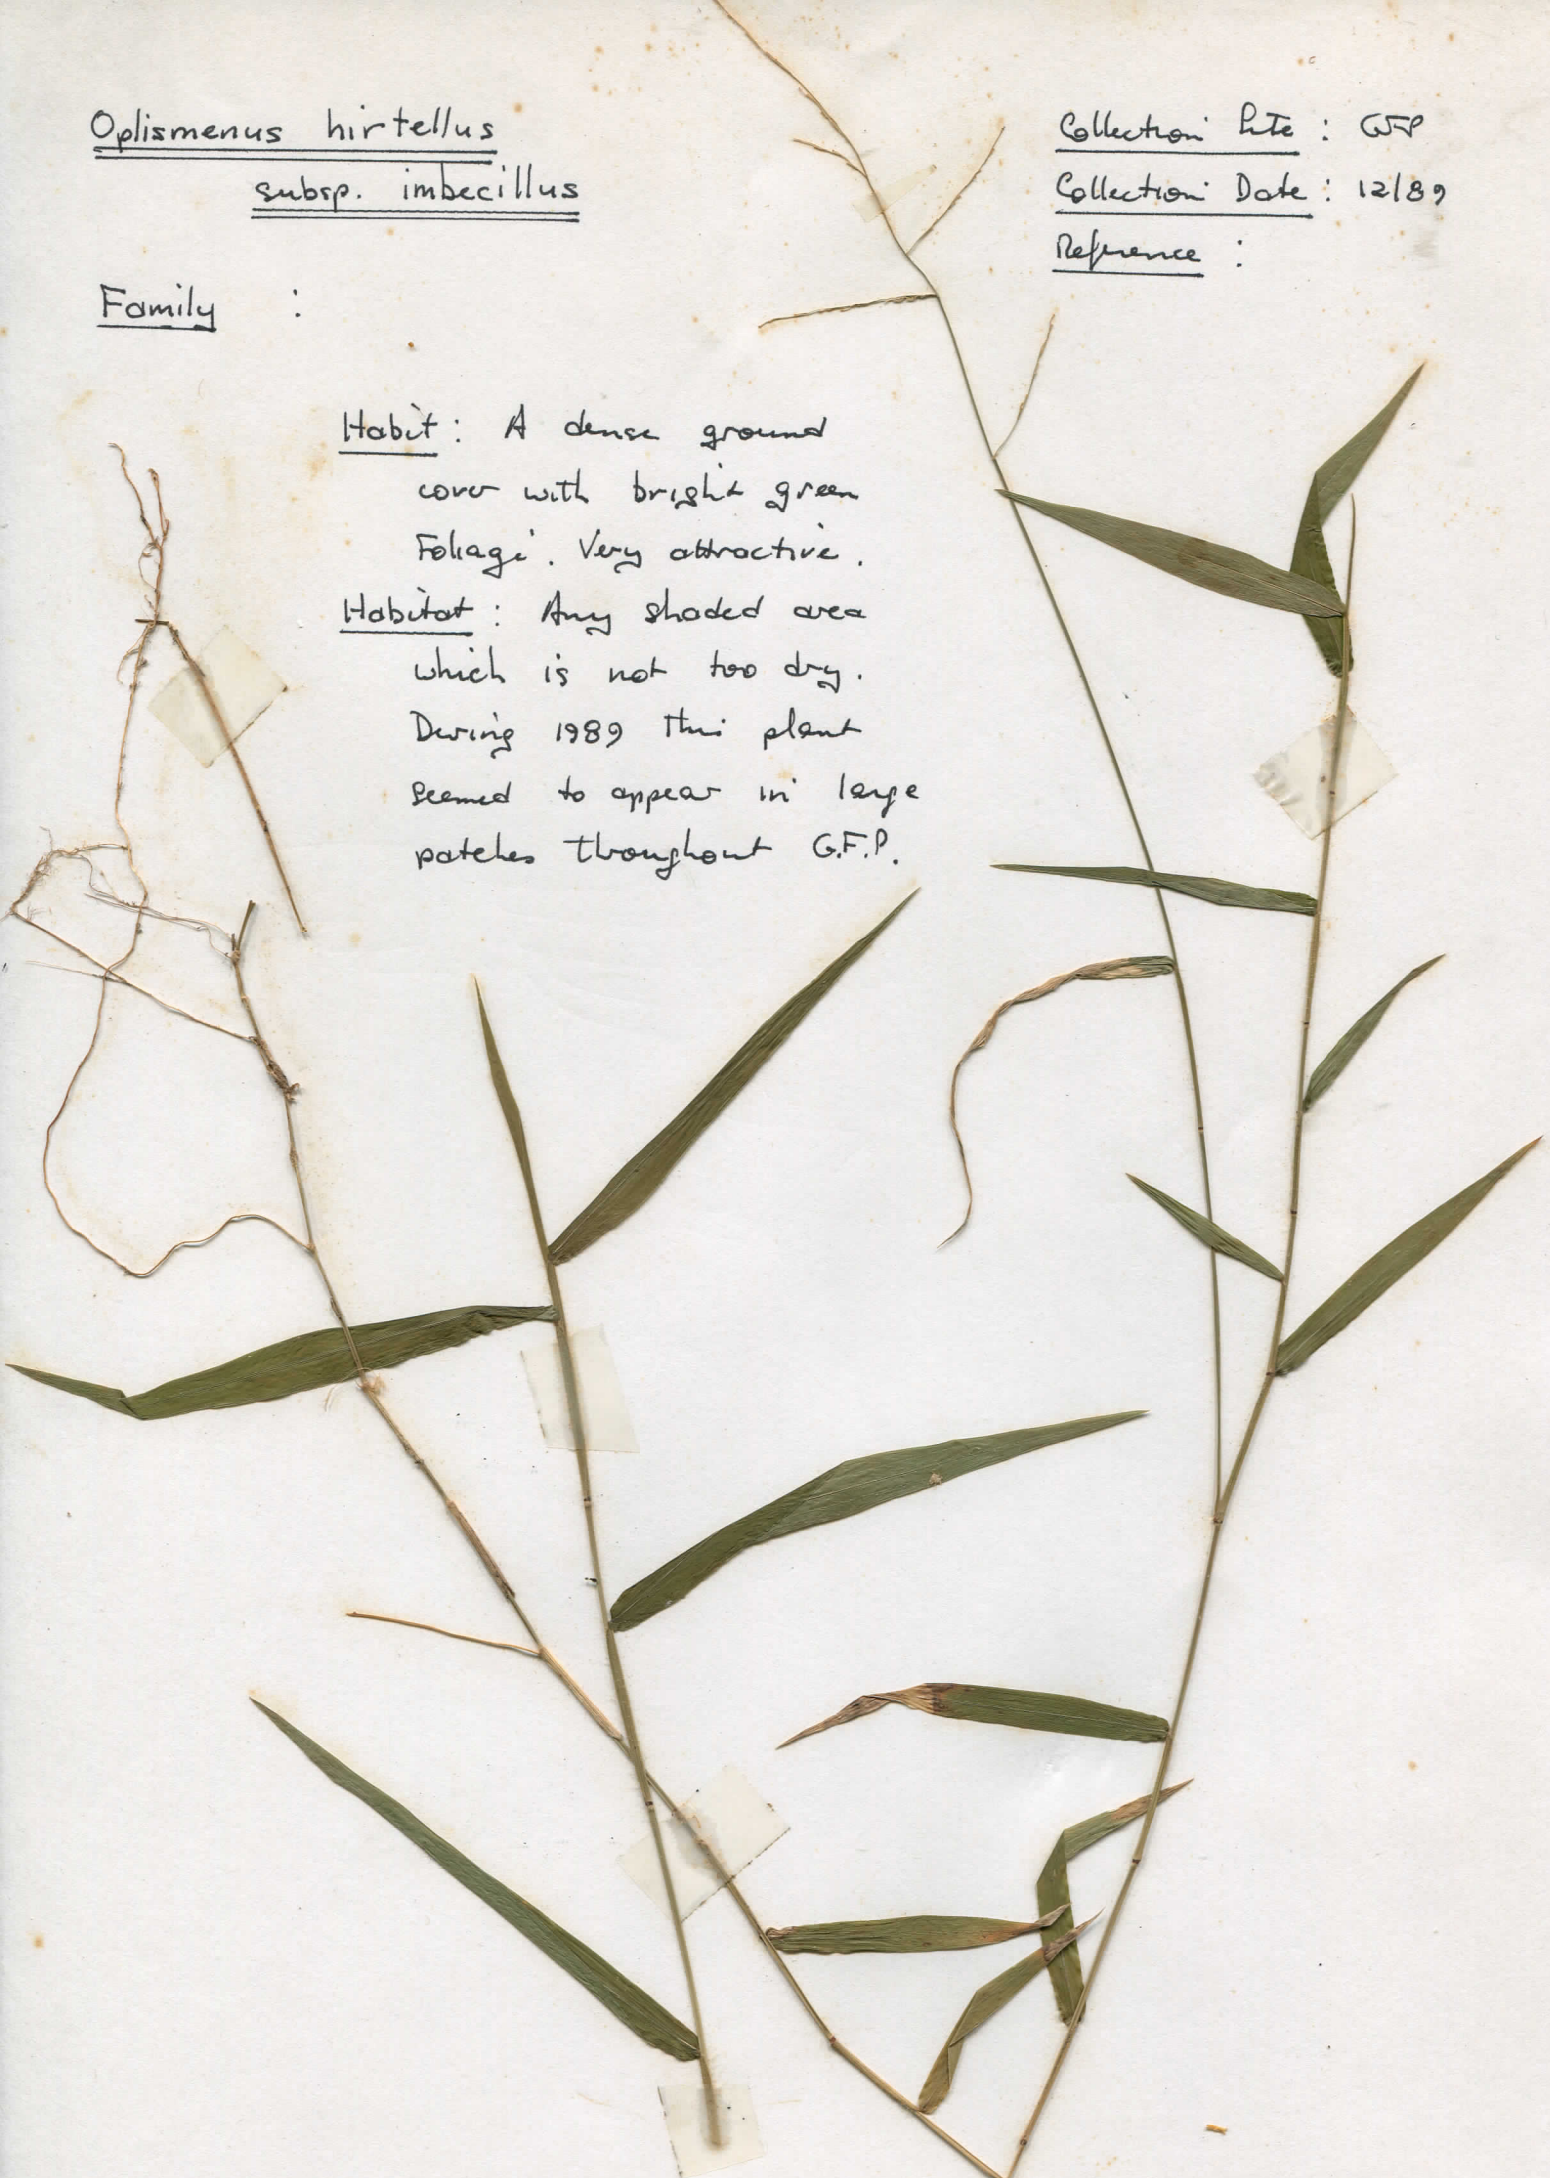 Oplismenus hirtellus
subsp. imbecillus
Collection Site : GFP
Collection Date : 12/89
Reference :
Family :
Habit : A dense ground
cover with bright green
Foliage. Very attractive.
Habitat : Any shaded area
which is not too dry.
During 1989 this plant
seemed to appear in large
patches throughout G.F.P.